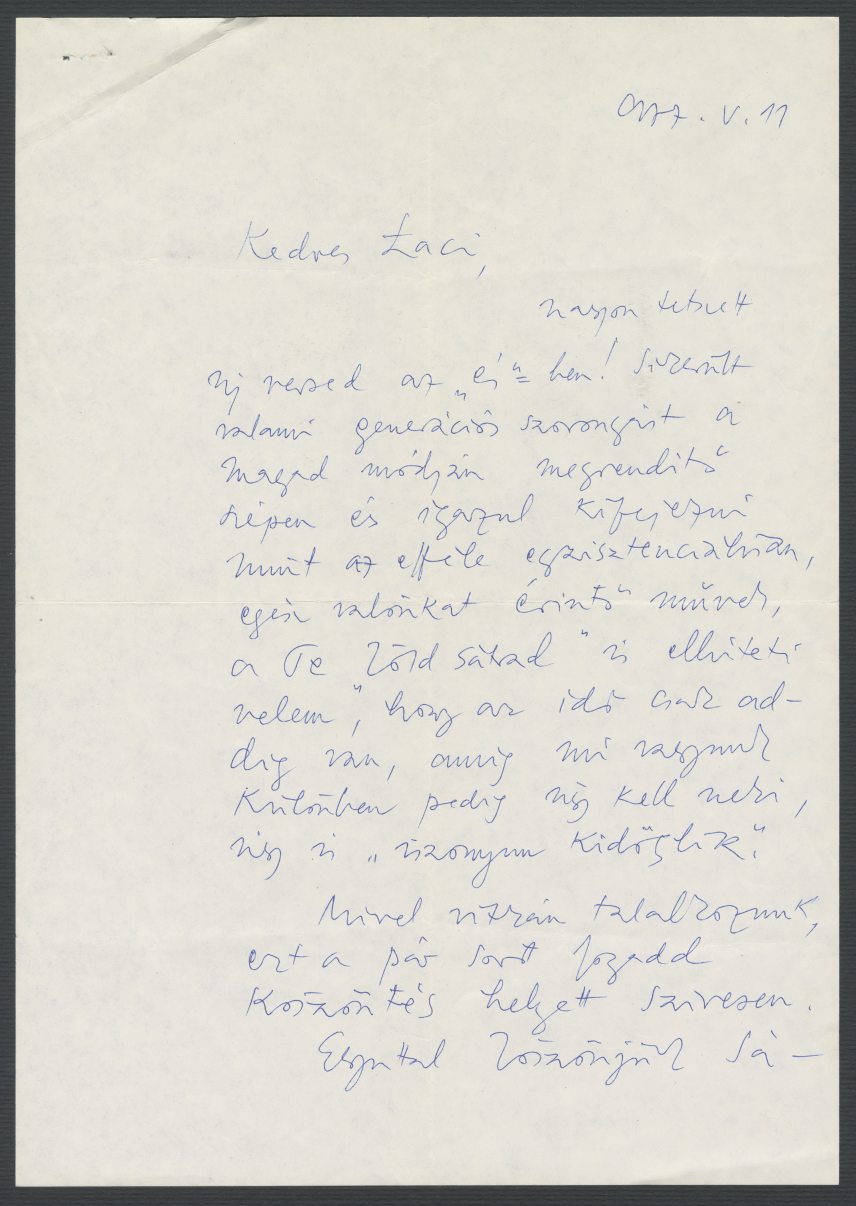 977. V. 11
Kedves Laci,
nagyon tetszett
új versed az „és"-ben! Sikerült
valami generációs szorongást a
magad módján megrendítő
szépen és igazul kifejezni
mint az efféle egzisztenciálisan,
egész valónkat érintő művek,
a Te zöld sátrad" is elhiteti
velem", hogy az idő csak ad-
dig van, amig mi vagyunk
Különben pedig úgy kell neki,
úgy is „iszonyun kidöglik".
Mivel ritkán találkozunk,
ezt a pár sort fogadd
Köszöntés helyett szivesen.
Egyuttal köszönjük Sá-